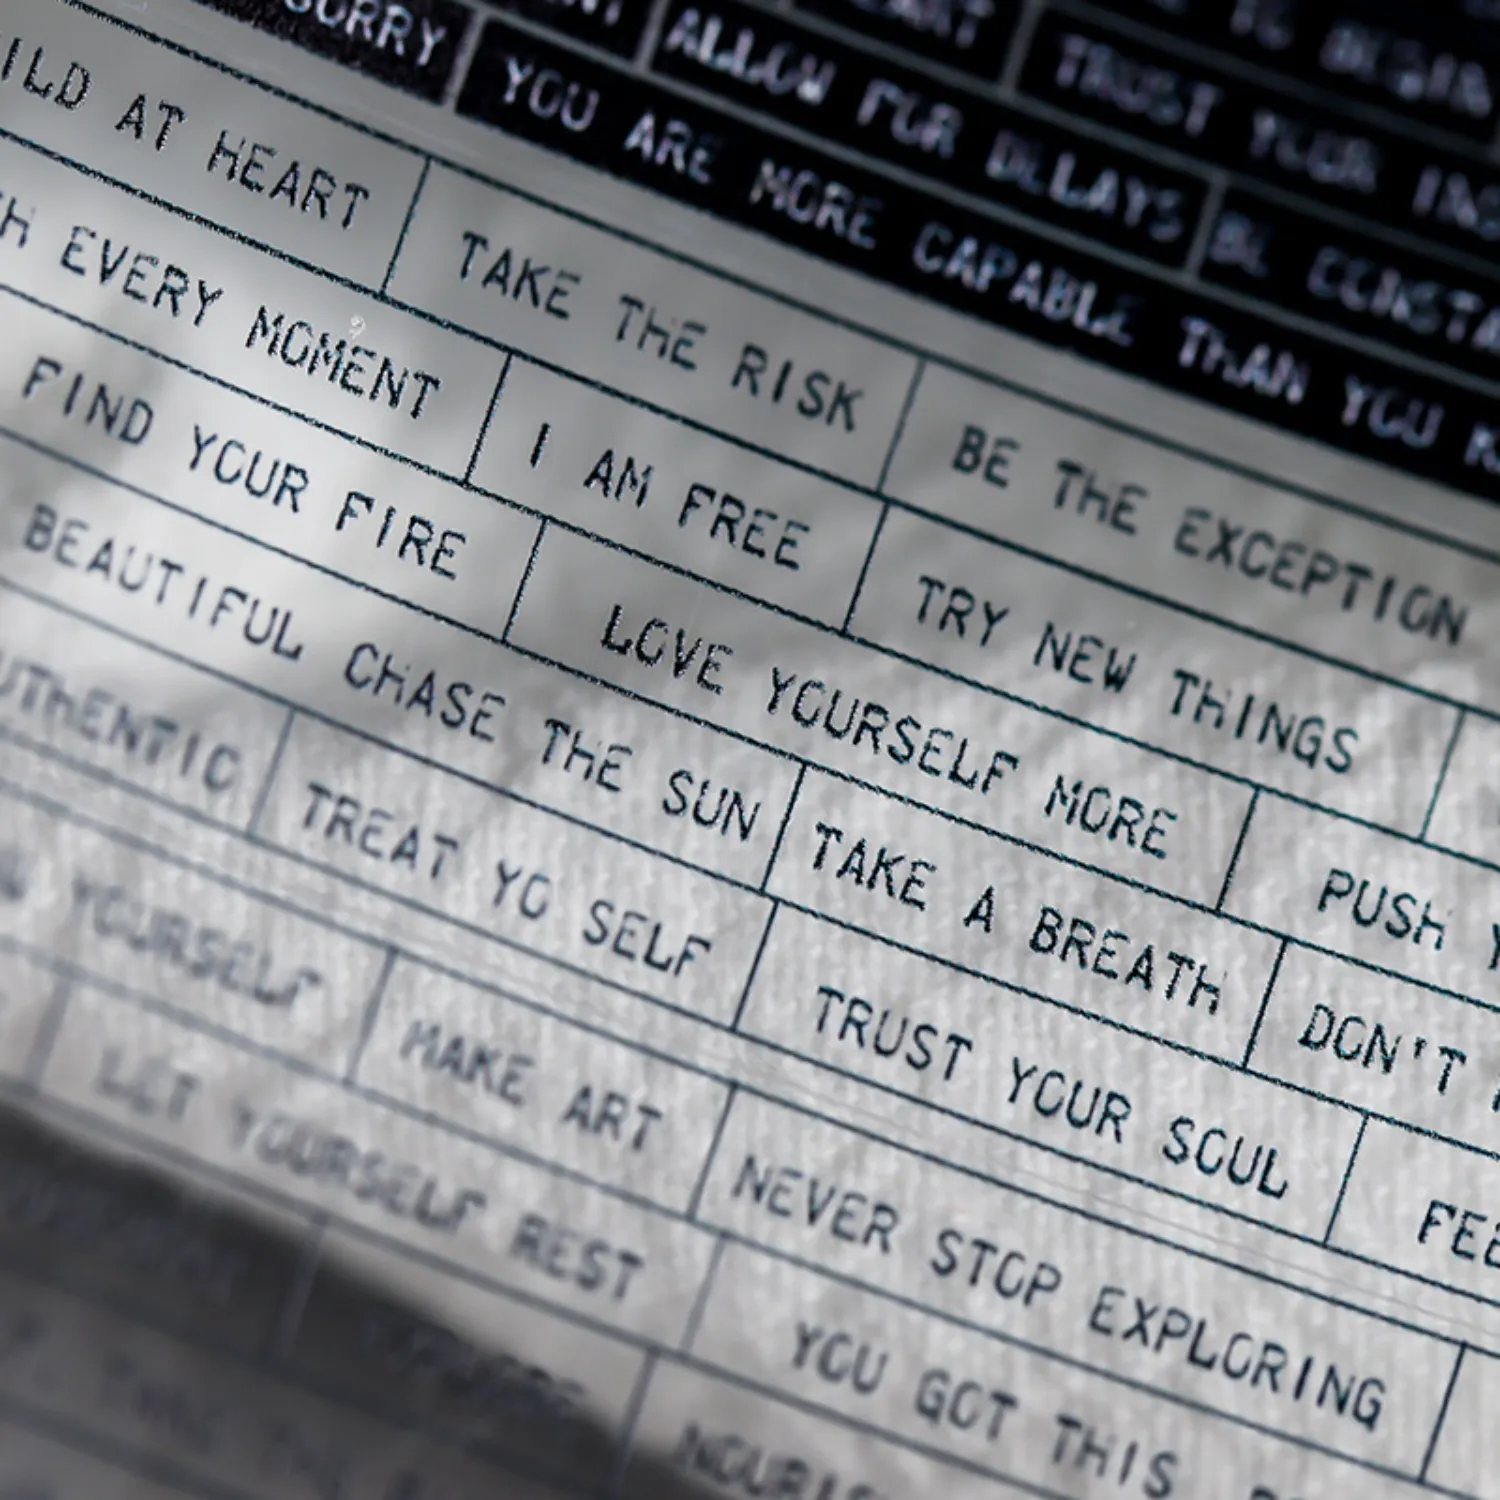 TO BEGIN
TRUST YOUR
ALLOW FOR DELAYS BE
YOU ARE MORE CAPABLE THAN YOU
AT HEART TAKE THE RISK BE THE EXCEPTION
EVERY MOMENT I AM FREE TRY NEW THINGS
FIND YOUR FIRE LOVE YOURSELF MORE PUSH
BEAUTIFUL CHASE THE SUN TAKE A BREATH DON'T
TREAT YO SELF TRUST YOUR SOUL
YOURSELF MAKE ART NEVER STOP EXPLORING
LET YOURSELF REST YOU GOT THIS